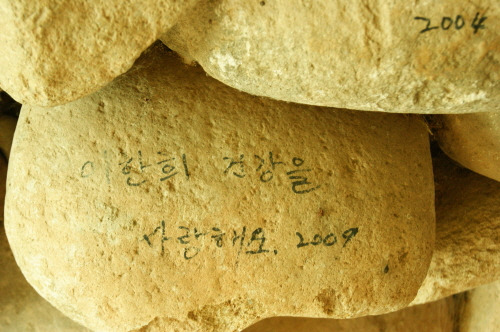 2004
이한희 건강을
사랑해요. 2009